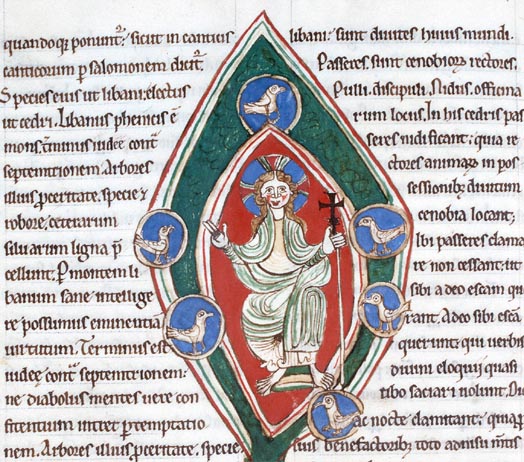 quandoq; ponunt᷑; sicut in canticis
canticorum ꝑ salomonem dicit᷑.
Species eius ut libani; electus
ut cedri. Libanus phenicis ē
mons, t᷑minus iudee cont᷑
septemtrionem. Arbores
illius ꝓceritate, specie ⁊
robore, ceterarum
siluarum ligna p̄
cellunt; ꝑ montem li
banum sane intellige
re possumus eminentiā
uirtutum. Terminus est
iudee cont᷑ septentrionem:
ne diabolus mentes uere con
fitentium intret ꝑ temptatio
nem. Arbores illius ꝓceritate, specie,
libani: sunt diuites huius mundi.
Passeres, sunt cenobioꝝ rectores,
Pulli, discipuli. Nidus, officina
rum locus. In his cedris pas
seres nidificant; quia re
ctores animaꝝ in pos
sessionibꝫ diuitum
cenobia locant;
Ibi passeres clama
re non cessant; ut
sibi a deo escam qu
rant. A deo sibi escā
querunt; qui uerbis
diuini eloquii quasi
cibo saciari nolunt. Di
ac nocte clamitant; quia ꝓ
suis benefactoribꝫ toto adnisu m̄tis